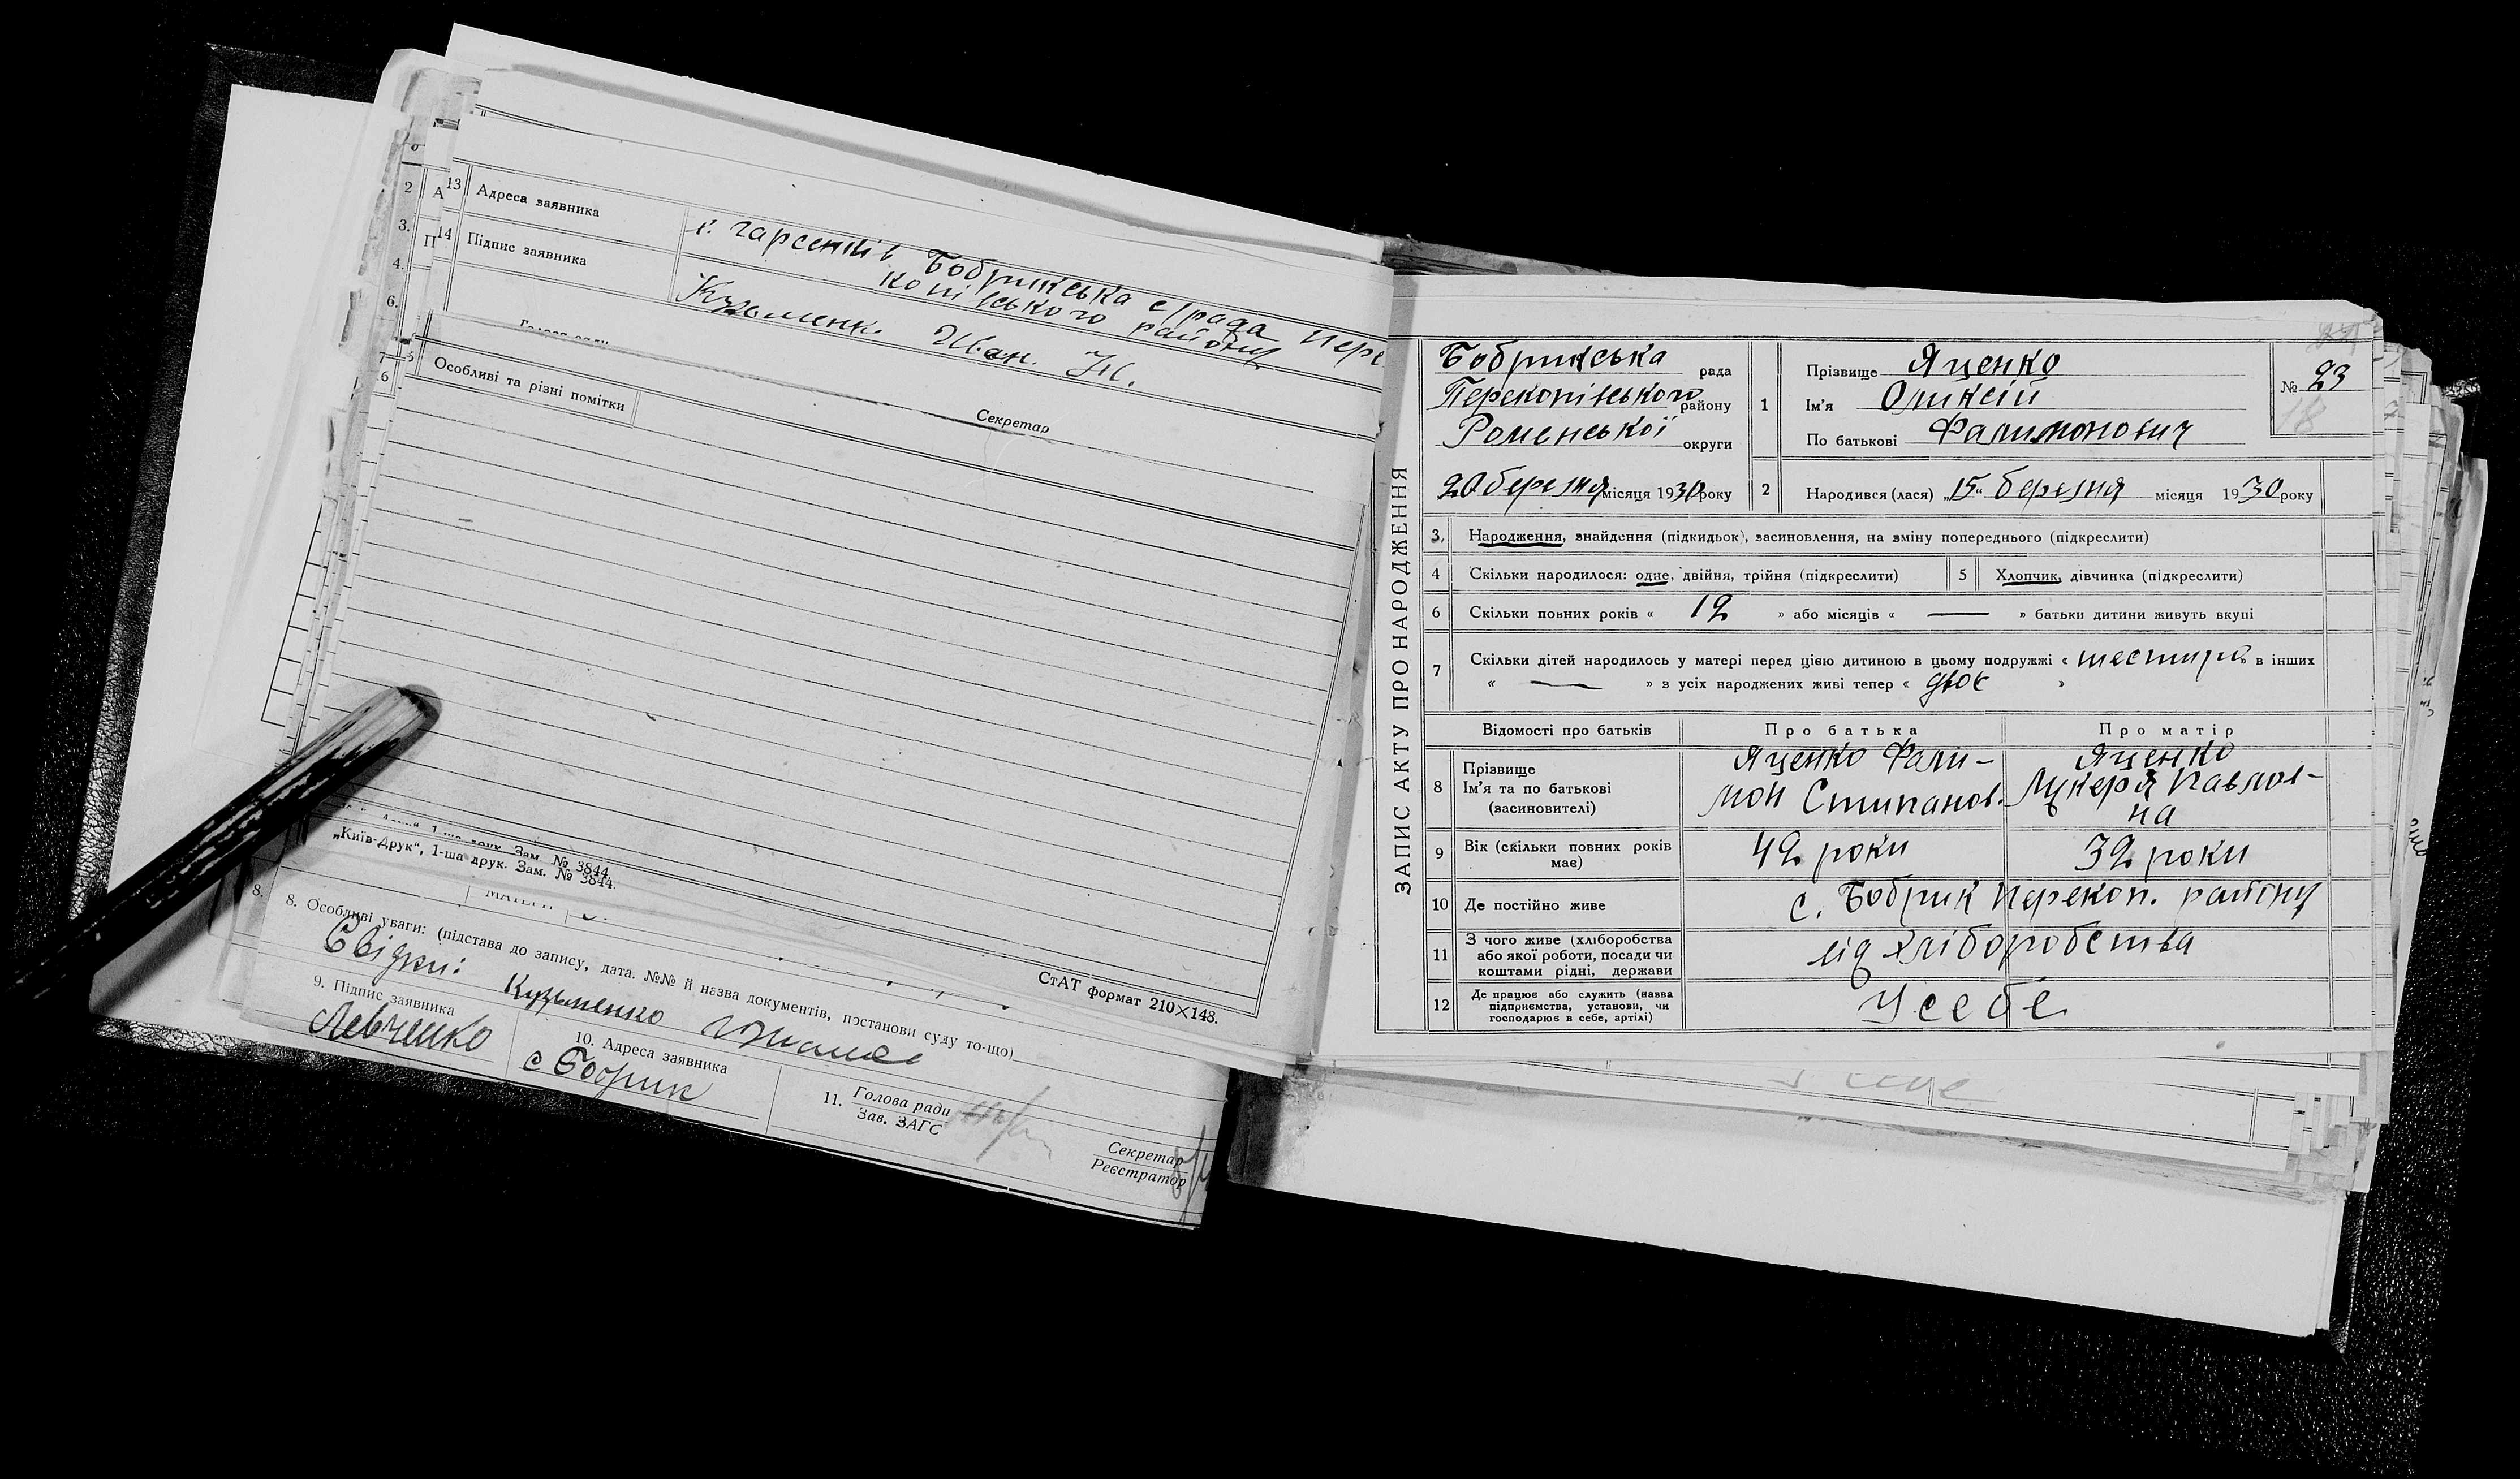 13 Адреса заявника
х. Чарсенків Бобрикська с/рада Пере
копівського району
14 Підпис заявника
Кузьменк. Иван. Ж.
Секретар
Особливі та різні помітки
„Київ-Друк“, 1-ша друк. Зам. № 3844.
СтАТ формат 210×148.
8. Особливі уваги: (підстава до запису, дата. №№ й назва документів, постанови суду то-що)
Свідки: Кузьменко
9. Підпис заявника
Левченко
10. Адреса заявника
с Бобрик
11. Голова ради
Зав. ЗАГС
Секретар
Реєстратор
ЗАПИС АКТУ ПРО НАРОДЖЕННЯ
Бобрикська рада
Перекопівського району
Роменської округи
20 березня місяця 1930 року
1 Прізвище Яценко
Ім'я Оликсій
По батькові Фалимонович
№ 23
18
2 Народився (лася) „15“ березня місяця 1930 року
3. Народження, знайдення (підкидьок), засиновлення, на зміну попереднього (підкреслити)
4 Скільки народилося: одне, двійня, трійня (підкреслити) 5 Хлопчик, дівчинка (підкреслити)
6 Скільки повних років « 12 » або місяців « — » батьки дитини живуть вкупі
7 Скільки дітей народилось у матері перед цією дитиною в цьому подружжі « шестиро » в інших
« — » з усіх народжених живі тепер « двоє »
Відомості про батьків Про батька Про матір
8 Прізвище
Ім'я та по батькові
(засиновителі)
Яценко Фали-
мон Стипанов.
Яценко
Лукеря Павлов-
на
9 Вік (скільки повних років має) 42 роки 32 роки
10 Де постійно живе с. Бобрик Перекоп. району
11 З чого живе (хліборобства
або якої роботи, посади чи
коштами рідні, держави
від хліборобства
12 Де працює або служить (назва
підприємства, установи, чи
господарює в себе, артілі)
У себе